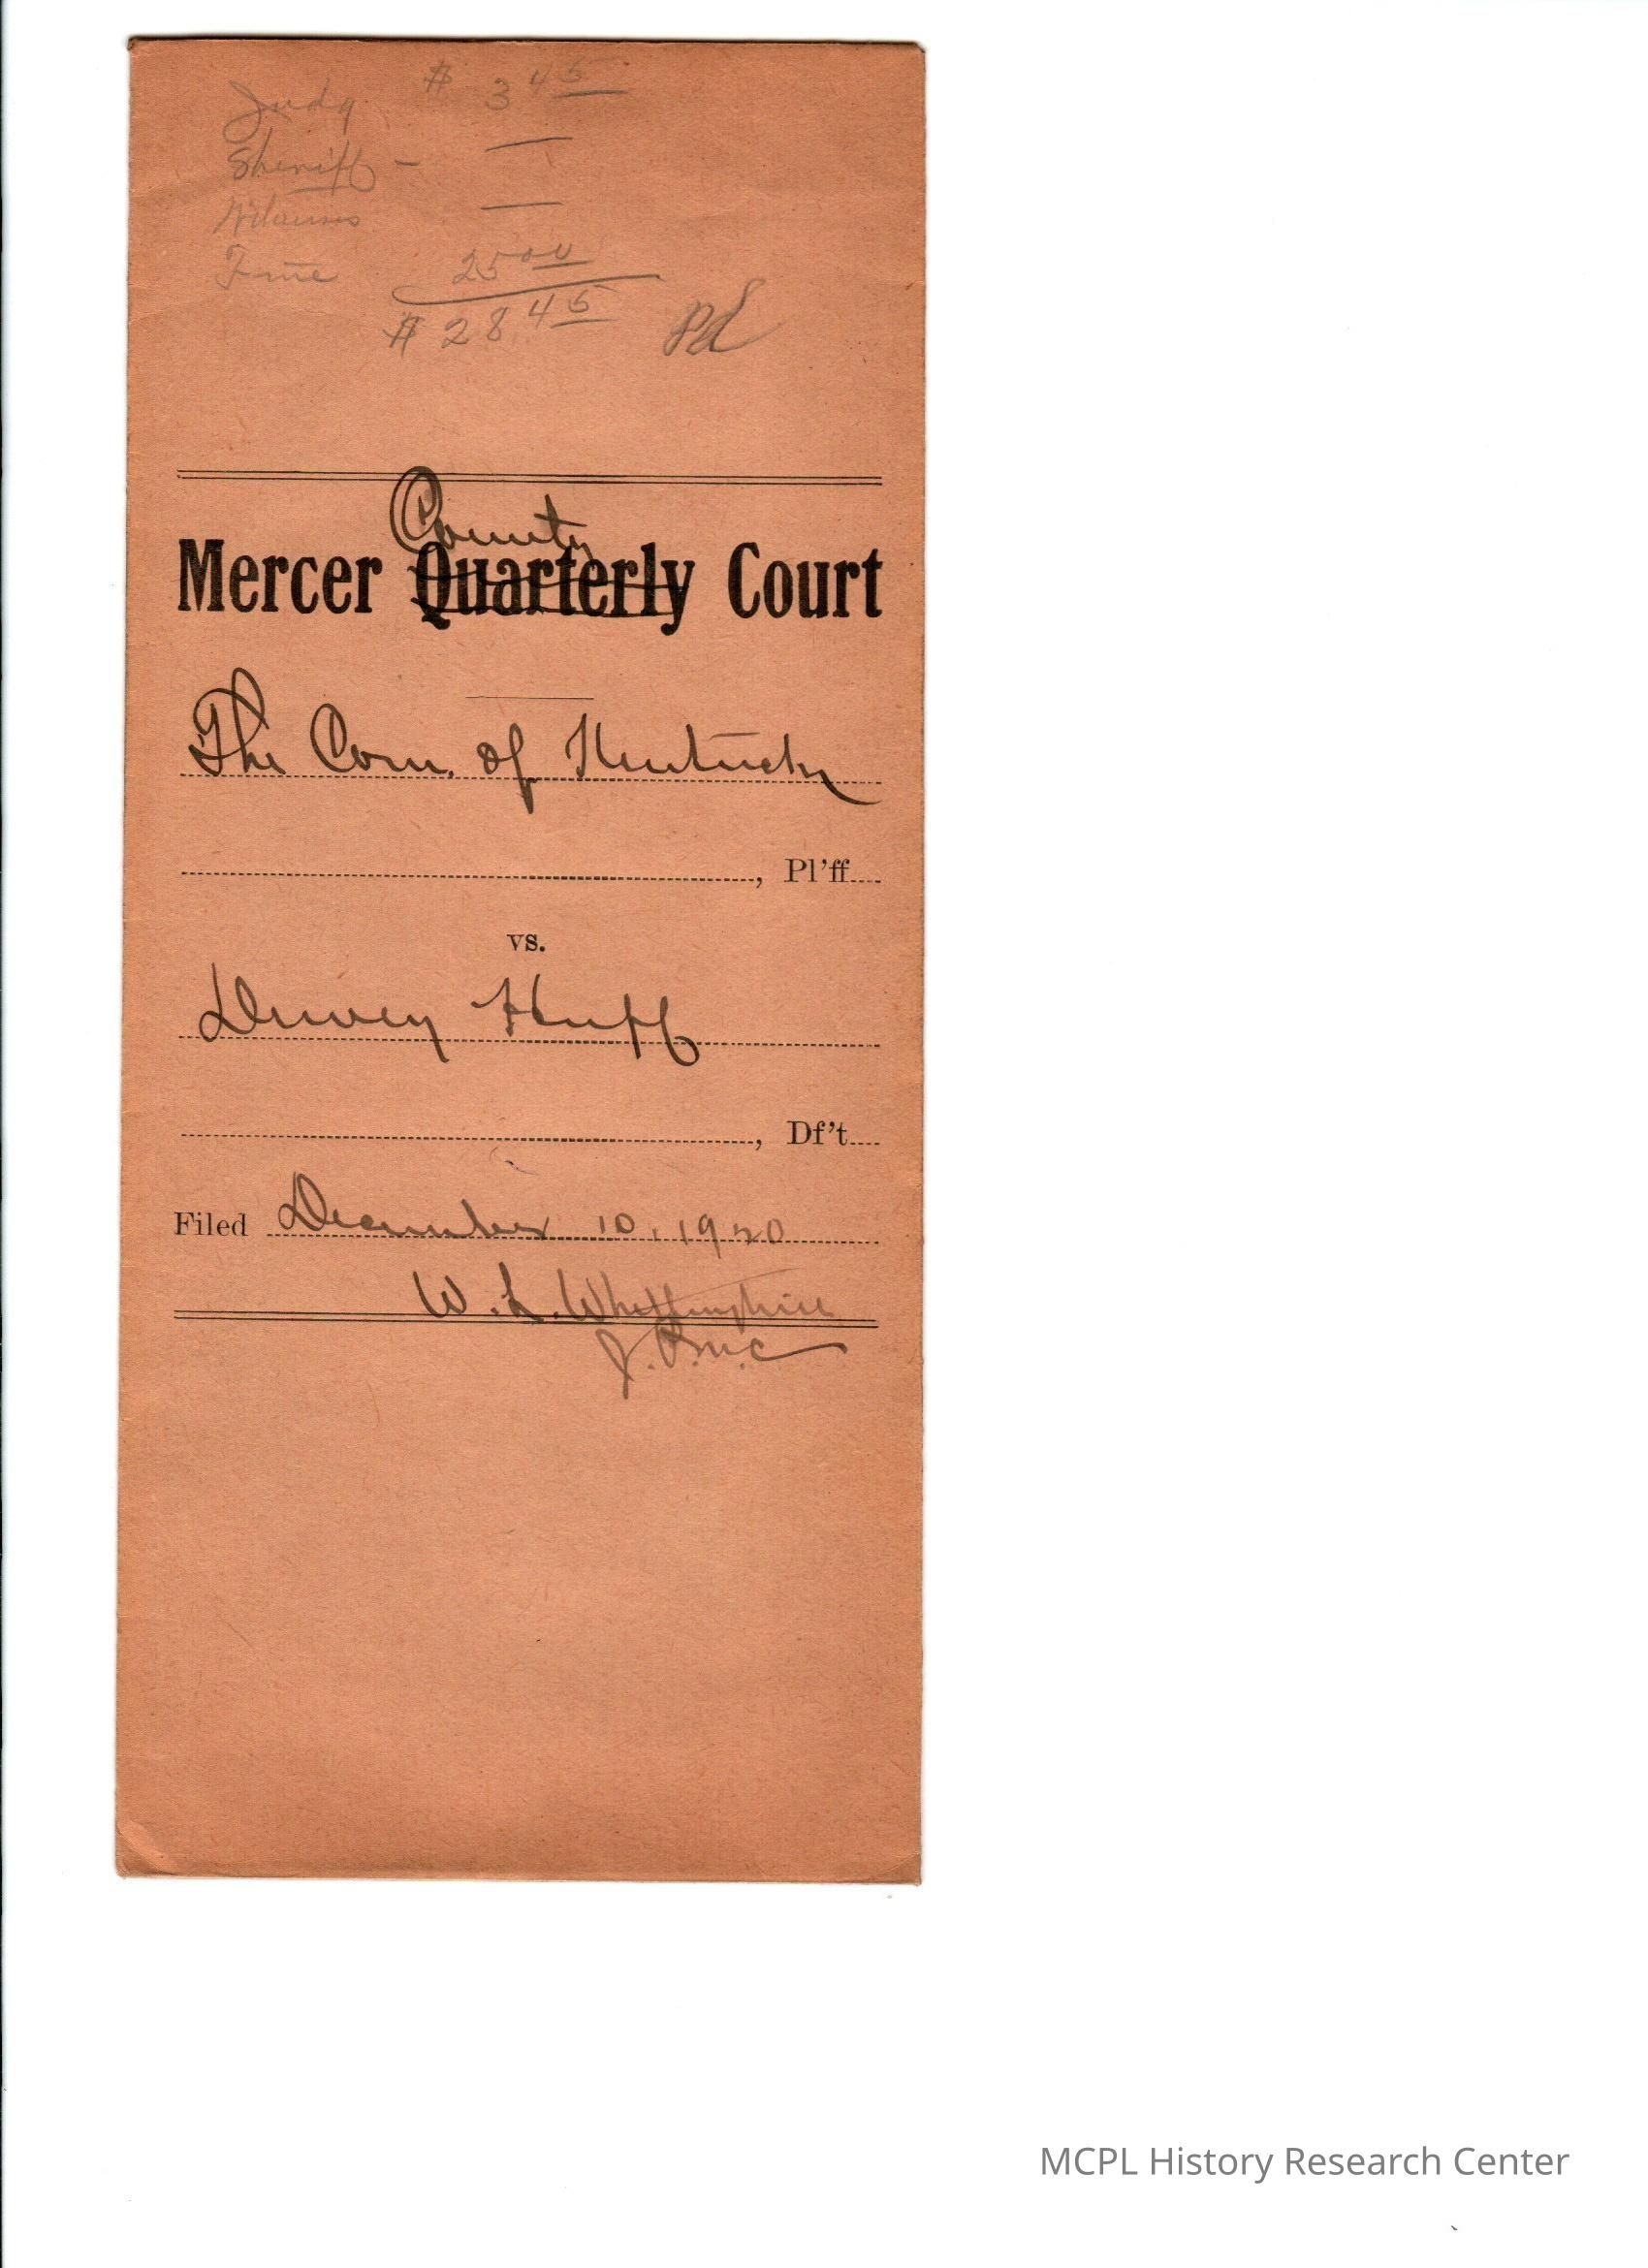 Judg $ 3 45
Sheriff - —
—
Fine 25 00
$ 28 45 Pd
County
Mercer Quarterly Court
The Com. of Kentucky
, Pl'ff
vs.
Dewey Huff
, Df't
Filed December 10, 1920
W. L.
J. P. M. C
MCPL History Research Center